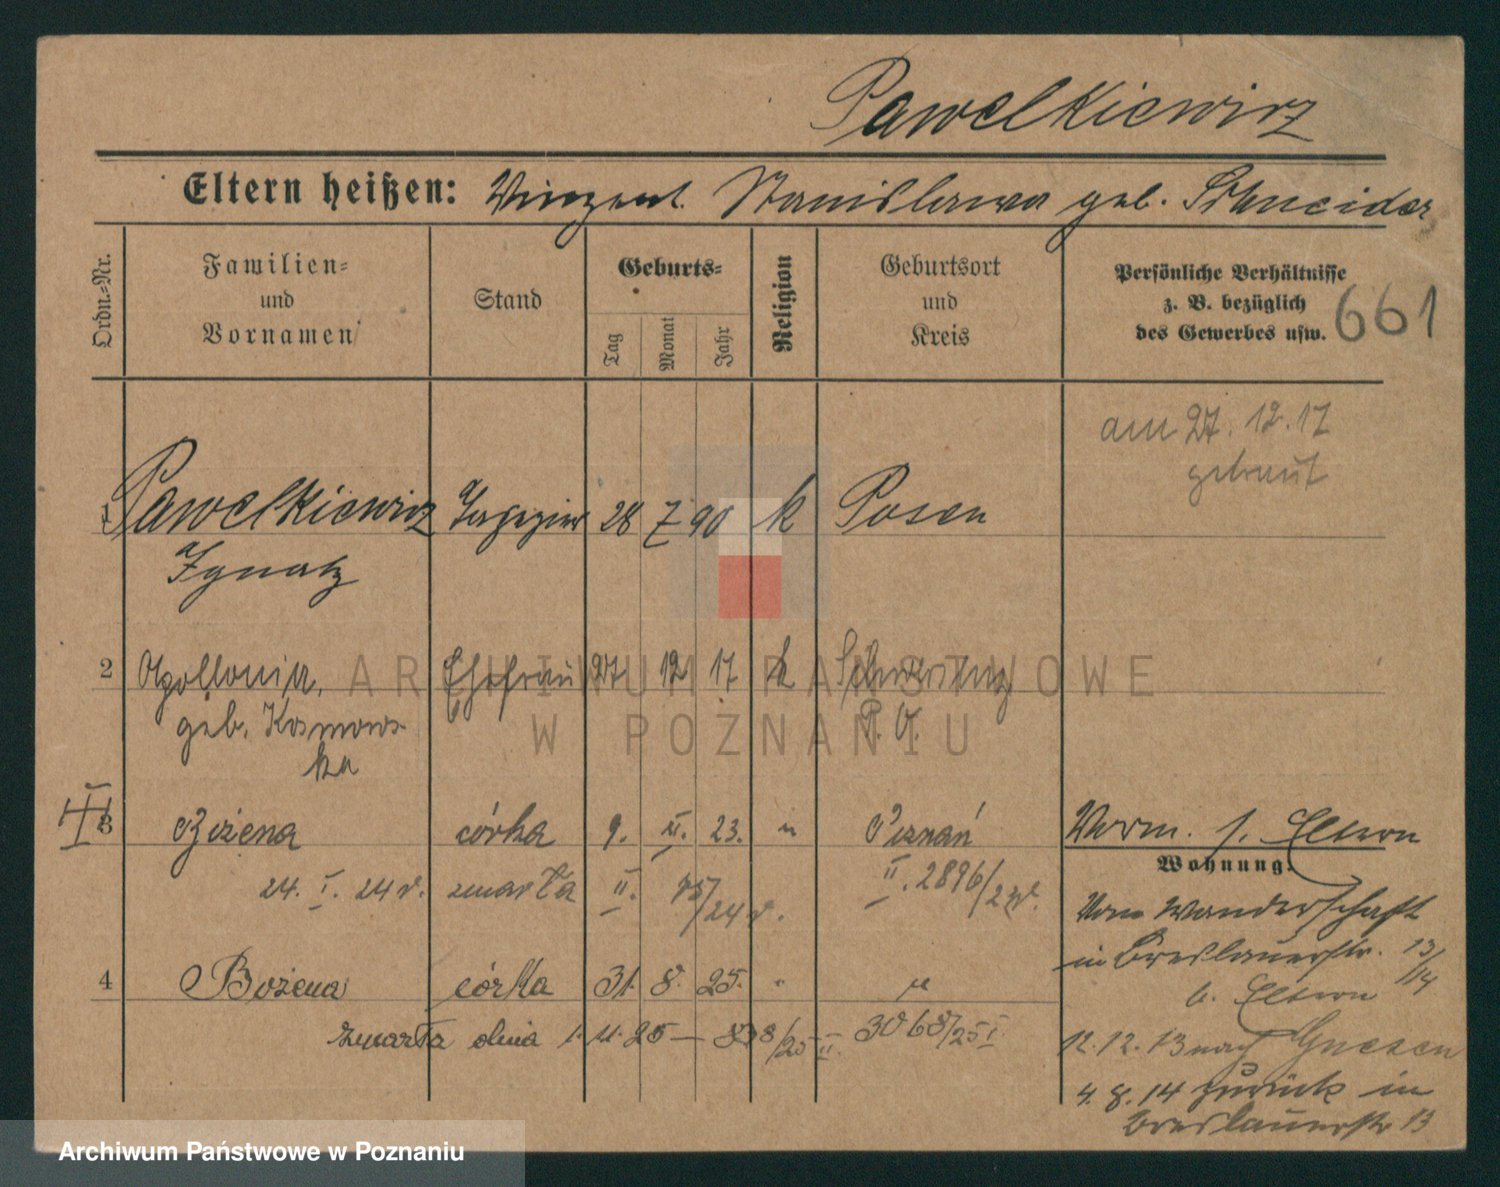 Pawelkiewicz
Eltern heißen: Vinzent. Stanislawa geb. Schneider
Ordn.-Nr.
Familien-
und
Vornamen
Stand
Geburts-
Tag
Monat
Jahr
Religion
Geburtsort
und
Kreis
Persönliche Verhältnisse
z. B. bezüglich
des Gewerbes usw.
661
am 27. 12. 17
getraut
1 Pawelkiewicz 28 7 90 k Posen
Ignatz
2 Apollonia, Ehefrau 27 12 17 k
geb. Kosmows
ka
3 Bożena córka 9. XI. 23. " Poznań
24. I. 24 r. zmarła II. 75/24 r. II. 2896/23 r.
Vorm. s. Eltern
Wohnung.
Von Wanderschaft
in Breslauerstr. 13/14
b. Eltern
4 Bożena córka 31. 8. 25. " "
zmarła dnia 1. 11. 25 — 838/25 II. 3068/25 I.
12. 12. 13 nach Gnesen
4. 8. 14 zurück in
Breslauerstr 13
ARCHIWUM PAŃSTWOWE
W POZNANIU
Archiwum Państwowe w Poznaniu